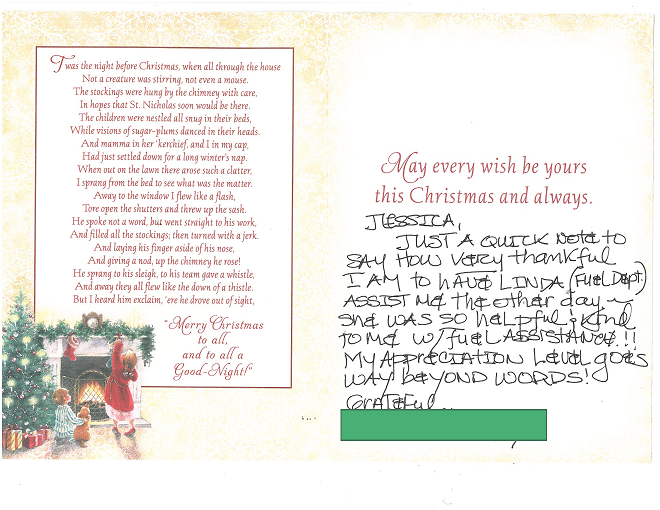 Twas the night before Christmas, when all through the house
Not a creature was stirring, not even a mouse.
The stockings were hung by the chimney with care,
In hopes that St. Nicholas soon would be there.
The children were nestled all snug in their beds,
While visions of sugar-plums danced in their heads.
And mamma in her 'kerchief, and I in my cap,
Had just settled down for a long winter's nap.
When out on the lawn there arose such a clatter,
I sprang from the bed to see what was the matter.
Away to the window I flew like a flash,
Tore open the shutters and threw up the sash.
He spoke not a word, but went straight to his work,
And filled all the stockings; then turned with a jerk.
And laying his finger aside of his nose,
And giving a nod, up the chimney he rose!
He sprang to his sleigh, to his team gave a whistle,
And away they all flew like the down of a thistle.
But I heard him exclaim, 'ere he drove out of sight,
"Merry Christmas
to all,
and to all a
Good-Night!"
May every wish be yours
this Christmas and always.
JESSICA,
JUST A QUICK NOTE TO
SAY HOW VERY THANKFUL
I AM TO HAVE LINDA (FUEL DEPT.)
ASSIST ME THE OTHER DAY ~
SHE WAS SO HELPFUL & KIND
TO ME W/ FUEL ASSISTANCE!!!
MY APPRECIATION LEVEL GOES
WAY BEYOND WORDS!
GRATEFUL..